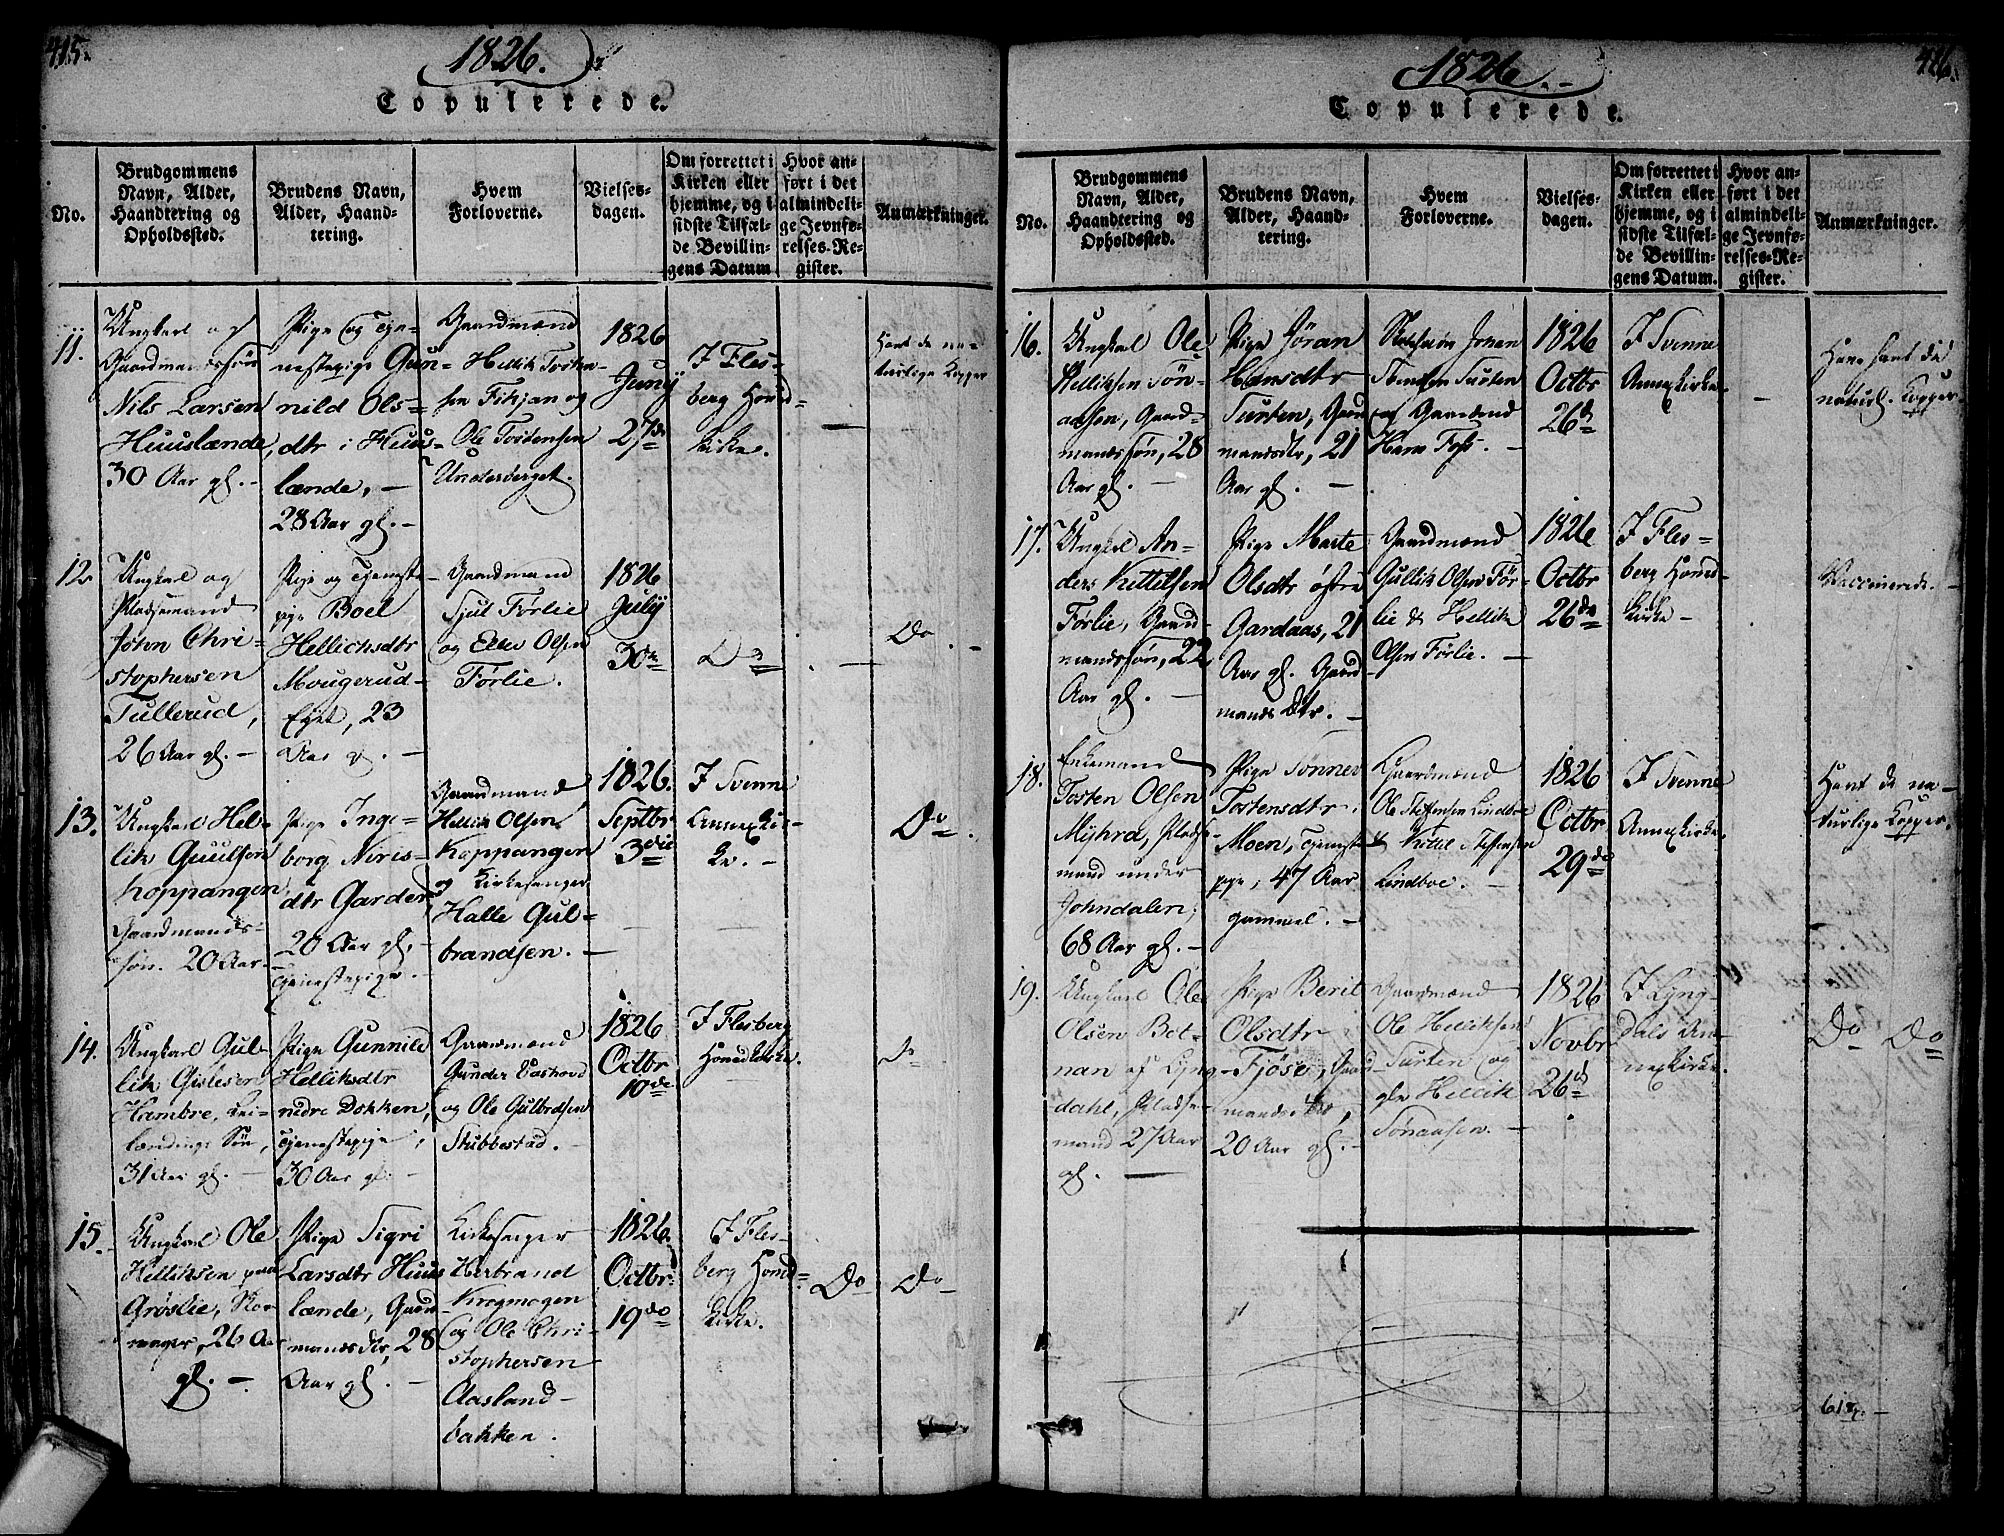 415.
1826.
Copulerede.
No.
Brudgommens
Navn, Alder,
Haandtering og
Opholdssted.
Brudens Navn,
Alder, Haand-
tering.
Hvem
Forloverne.
Vielses-
dagen.
Om forrettet i
Kirken eller
hjemme, og i
sidste Tilfæl-
de Bevillin-
gens Datum
Hvor an-
ført i det
almindeli-
ge Jevnfø-
relses-Re-
gister.
Anmærkninger.
11.
Ungkarl og
Gaardmandssøn
Nils Larsen
Huuslænde,
30 Aar gl. -
Pige og Tje-
nestepige Gun-
nild Ols-
dtr i Huus-
lænde, -
28 Aar gl. -
Gaardmænd
Hellik Tosten-
sen Fikjan og
Ole Tostensen
Underberget.
1826
Juny
27de
I Fles-
berg Hoved-
kirke.
-
Havt de na-
turlige Kopper
12.
Ungkarl og
Pladsemand
Joten Chri-
stophersen
Tullerud,
26 Aar gl. -
Pige og Tjeneste-
pige Boel
Hellichsdtr
Mougerud-
Eyet, 23
Aar gl. -
Gaardmænd
Sjul Førlie
og Ellev Olsen
Førlie.
1826
July
30te
Do
-
Do -
13.
Ungkarl Hel-
lik Guulsen
Koppangen,
Gaardmands-
søn. 20 Aar. -
Pige Inge-
borg Niris-
dtr Garder,
20 Aar gl. -
Tjenestepige.
Gaardmænd
Hellik Olsen
Koppangen
og Kirkesanger
Halle Gul-
brandsen. -
1826.
Septbr
3die
I Svenne
Annex Kir-
ke. -
Do.
14.
Ungkarl Gul-
lik Gislesen
Hambre, Lei-
lændings Søn,
31 Aar gl. -
Pige Gunnild
Helliksdtr
nedre Dokken,
Tjenestepige,
30 Aar gl. -
Gaardmænd
Gunder Aashovd
og Ole Gulbrdsen
Stubberstad. -
1826
Octbr
10de
I Flesberg
Hovedkirke.
Do
15.
Ungkarl Ole
Helliksen paa
Grøslie, Sko-
mager, 26 Aar
gl. -
Pige Sigri
Larsdtr Huus
lænde, Gaard
mandsdtr, 28
Aar gl. -
Kirkesanger
Herbrand
Krogmogen
og Ole Chri-
stophersen
Aasland-
bakken.
1826.
Octbr
19de
I Fles-
berg Hoved-
Kirke.
Do
Do
416.
1826.
Copulerede.
No.
Brudgommens
Navn, Alder,
Haandtering og
Opholdssted.
Brudens Navn,
Alder, Haand-
tering.
Hvem
Forloverne.
Vielses-
dagen.
Om forrettet i
Kirken eller
hjemme, og i
sidste Tilfæl-
de Bevillin-
gens Datum.
Hvor an-
ført i det
almindeli-
ge Jevnfø-
relses-Re-
gister.
Anmærkninger.
16.
Ungkarl Ole
Helliksen Søn-
aasen, Gaard-
mandssøn, 28
Aar gl. -
Pige Jøran
Hansdtr
Turten, Gaard
mandsdtr, 21
Aar gl. -
Johan
Steensen Turten
og Gaardmd
Hans Foss. -
1826
Octbr
26de
I Svenne
Annexkirke.
-
Have havt de
naturl. Kopper.
17.
Ungkarl An-
ders Kittilsen
Førlie, Gaard-
mandssøn, 22
Aar gl. -
Pige Marte
Olsdtr øfstre
Gardaas, 21
Aar gl. Gaard-
mands Dtr. -
Gaardmænd
Gullik Olsen Før-
lie & Hellik
Olsen Førlie. -
1826
Octbr
26de
I Fles-
berg Hoved-
Kirke -
Vaccinerede. -
18.
Enkemand
Tosten Olsen
Myhra, Pladse-
mand under
Johndalen,
68 Aar gl. -
Pige Tønnev
Tostensdtr
Moen, Tjeneste
pige, 47 Aar
gammel. -
Gaardmænd
Ole Steffensen Lindboe
& Kittil Steffensen
Lindboe. -
1826
Octbr
29de
I Svenne
Annexkirke.
Havt de na-
turlige Kopper.
19.
Ungkarl Ole
Olsen Bot-
nan af Lyng-
dahl, Pladse-
mand 27 Aar
gl. -
Pige Berit
Olsdtr
Fjøse, Gaard
mands Dtr,
20 Aar gl. -
Gaardmænd
Ole Helliksen
Turten og
gle Hellik
Sønaasen. -
1826
Novbr
26de
I Lyng-
dals An-
nexkirke.
Do Do